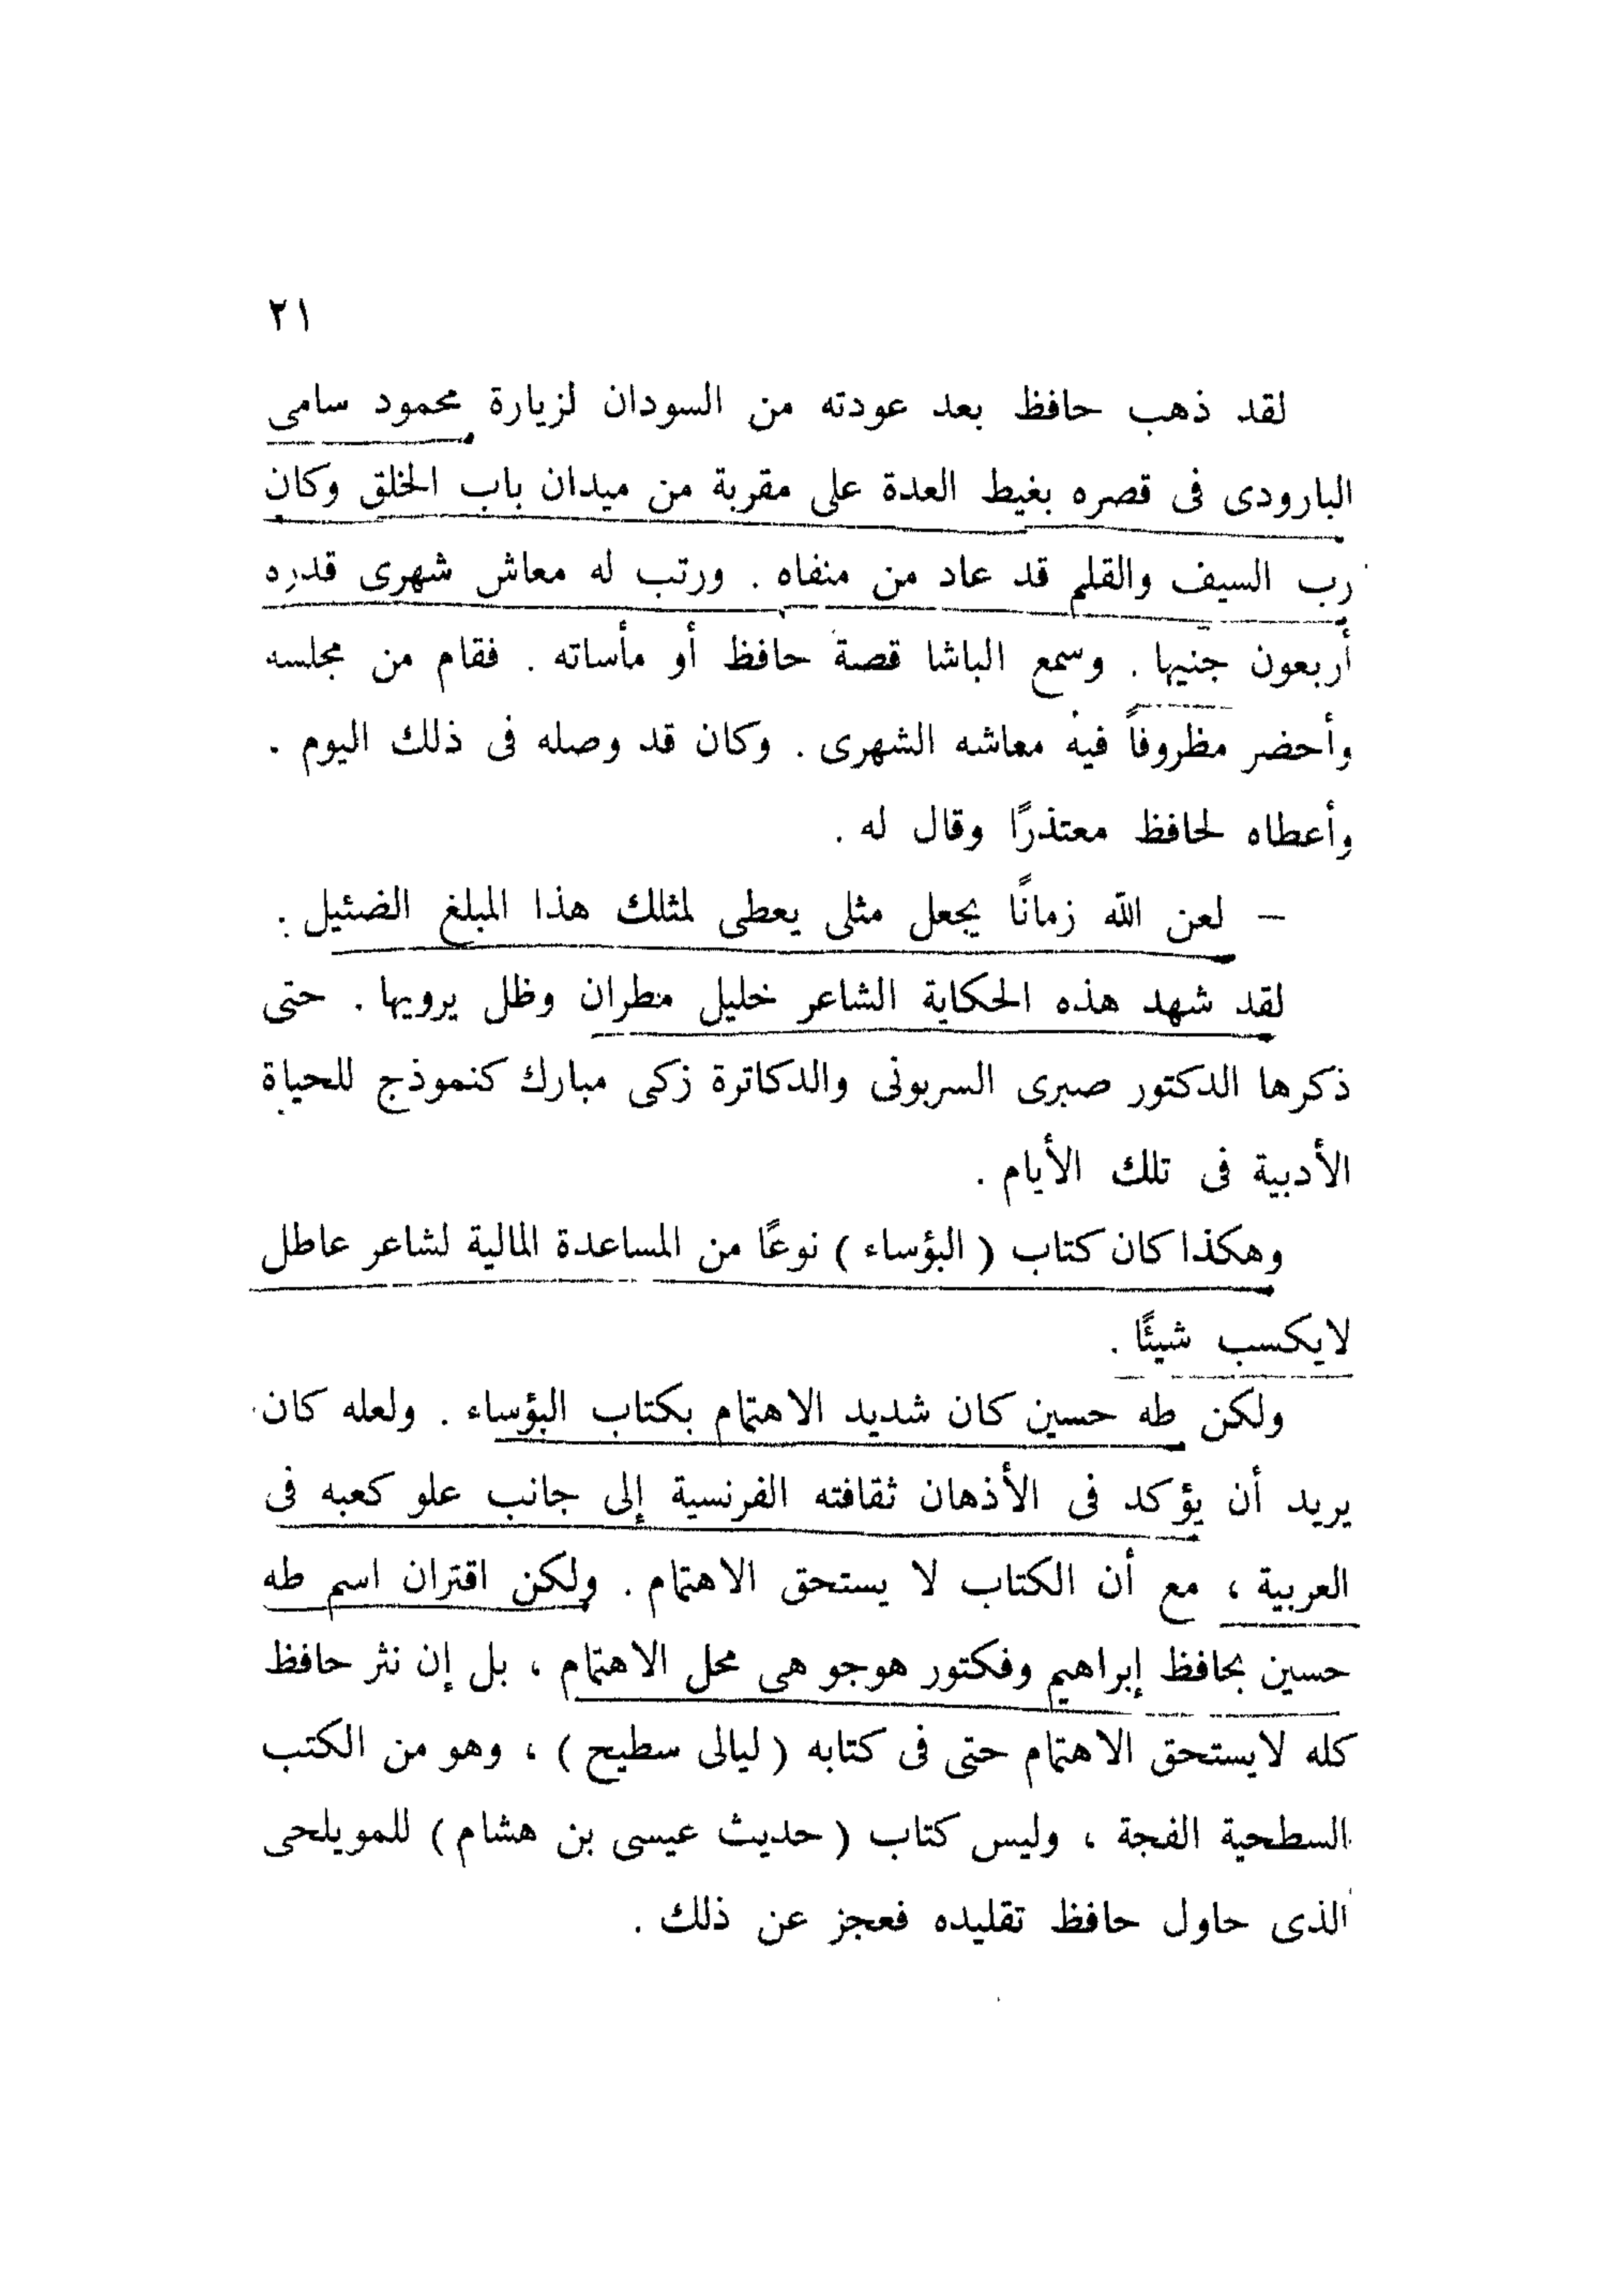 ٢١
لقد ذهب حافظ بعد عودته من السودان لزيارة محمود سامى
البارودى فى قصره بغيط العدة على مقربة من ميدان باب الخلق وكان
رب السيف والقلم قد عاد من منفاه . ورتب له معاش شهرى قدره
أربعون جنيها . وسمع الباشا قصة حافظ أو مأساته . فقام من مجلسه
وأحضر مظروفاً فيه معاشه الشهرى . وكان قد وصله فى ذلك اليوم .
وأعطاه لحافظ معتذرًا وقال له .
– لعن الله زمانًا يجعل مثلى يعطى لمثلك هذا المبلغ الضئيل :
لقد شهد هذه الحكاية الشاعر خليل مطران وظل يرويها . حتى
ذكرها الدكتور صبرى السربونى والدكاترة زكى مبارك كنموذج للحياة
الأدبية فى تلك الأيام .
وهكذا كان كتاب ( البؤساء ) نوعًا من المساعدة المالية لشاعر عاطل
لايكسب شيئًا .
ولكن طه حسين كان شديد الاهتمام بكتاب البؤساء . ولعله كان
يريد أن يؤكد فى الأذهان ثقافته الفرنسية إلى جانب علو كعبه فى
العربية ، مع أن الكتاب لا يستحق الاهتمام . ولكن اقتران اسم طه
حسين بحافظ إبراهيم وفكتور هوجو هى محل الاهتمام ، بل إن نثر حافظ
كله لايستحق الاهتمام حتى فى كتابه ( ليالى سطيح ) ، وهو من الكتب
السطحية الفجة ، وليس كتاب ( حديث عيسى بن هشام ) للمويلحى
الذى حاول حافظ تقليده فعجز عن ذلك .